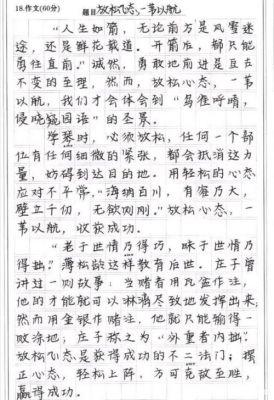 18.作文(60分)
题目 放松心态,一苇以航
"人生如箭,无论前方是风雪迷
途,还是鲜花载道。开箭后,都只能
勇往直前。"诚然,勇敢地前进是亘古
不变的至理,然而,放松心态,一苇
以航,我们才会体会到"鸟雀呼晴,
侵晓窥园语"的圣景。
学琴时,必须放松,任何一个部
位有任何细微的紧张,都会抵消这力
量,妨碍到达目的地。用轻松的心态
应对不平常。"海纳百川,有容乃大,
壁立千仞,无欲则刚。"放松心态,一
苇以航,收获成功。
"老于世情乃得巧,昧于世情乃
得拙。"薄松龄这样教育后世。庄子曾
讲过一则故事:当赌者用瓦盆作注,
他的才能就可以淋漓尽致地发挥出来,
然而用金银作赌注,他就只能输得一
败涂地,庄子称之为"外重者内拙"。
放松心态是获得成功的不二法门;摆
正心态,轻松上阵,方可克敌至胜,
赢得成功。